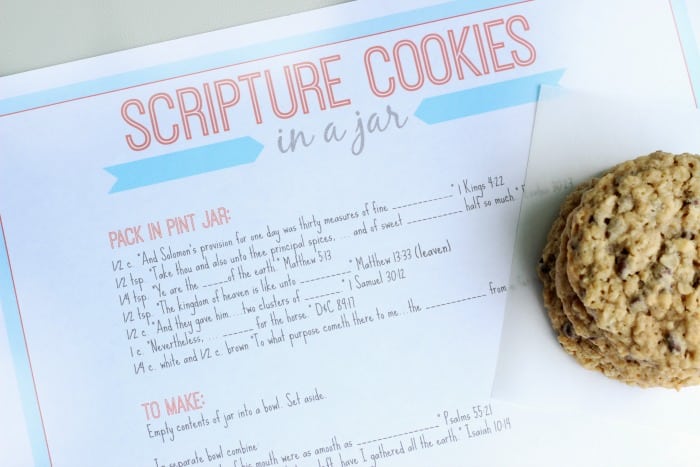 SCRIPTURE COOKIES
in a jar
PACK IN PINT JAR:
1/2 c. "And Solomon's provision for one day was thirty measures of fine __________." 1 Kings 4:22
1/2 tsp. "Take thou and also unto thee principal spices, ... and of sweet __________ half so much."
1/4 tsp. "Ye are the _____ of the earth." Matthew 5:13
1/2 tsp. "The kingdom of heaven is like unto __________." Matthew 13:33 (leaven)
1/2 c. "And they gave him ... two clusters of _______." 1 Samuel 30:12
1 c. "Nevertheless, ... ______ for the horse." D&C 89:17
1/4 c. white and 1/2 c. brown "To what purpose cometh there to me...the ____________ from
TO MAKE:
Empty contents of jar into a bowl. Set aside.
In separate bowl combine:
of his mouth were as smooth as ______________." Psalms 55:21
left, have I gathered all the earth." Isaiah 10:14